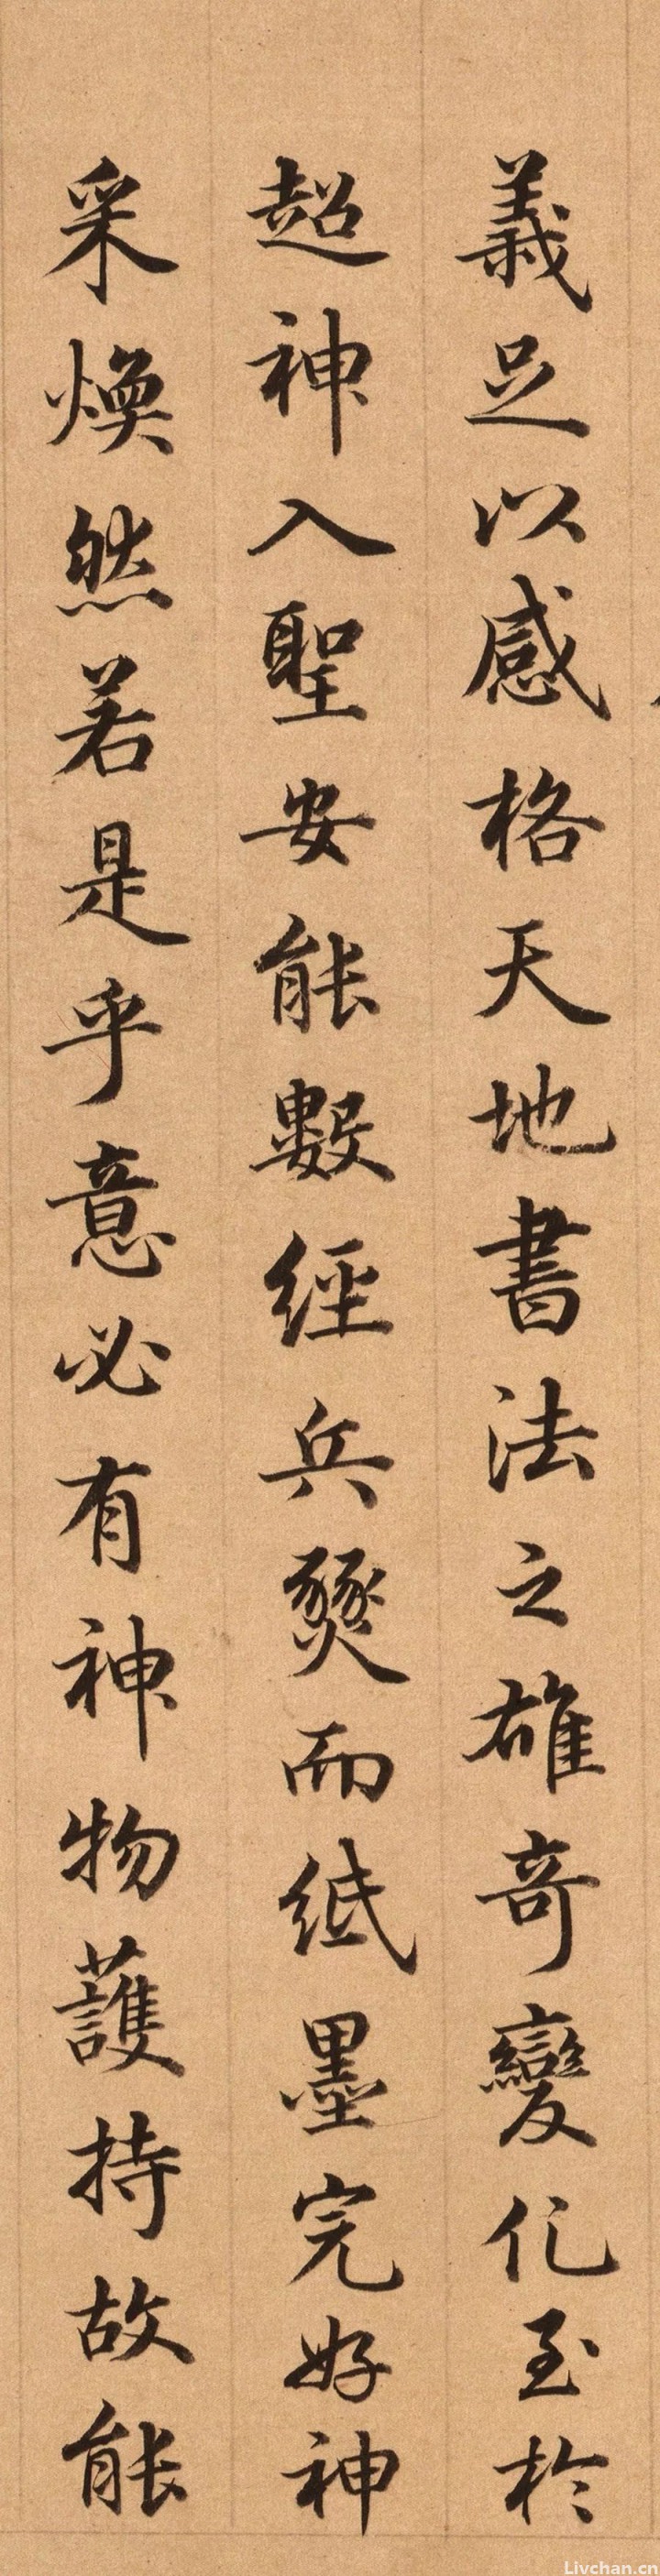 義足以感格天地書法之雄奇變化至於
超神入聖安能數經兵燹而紙墨完好神
采煥然若是乎意必有神物護持故能
Livchan.cn